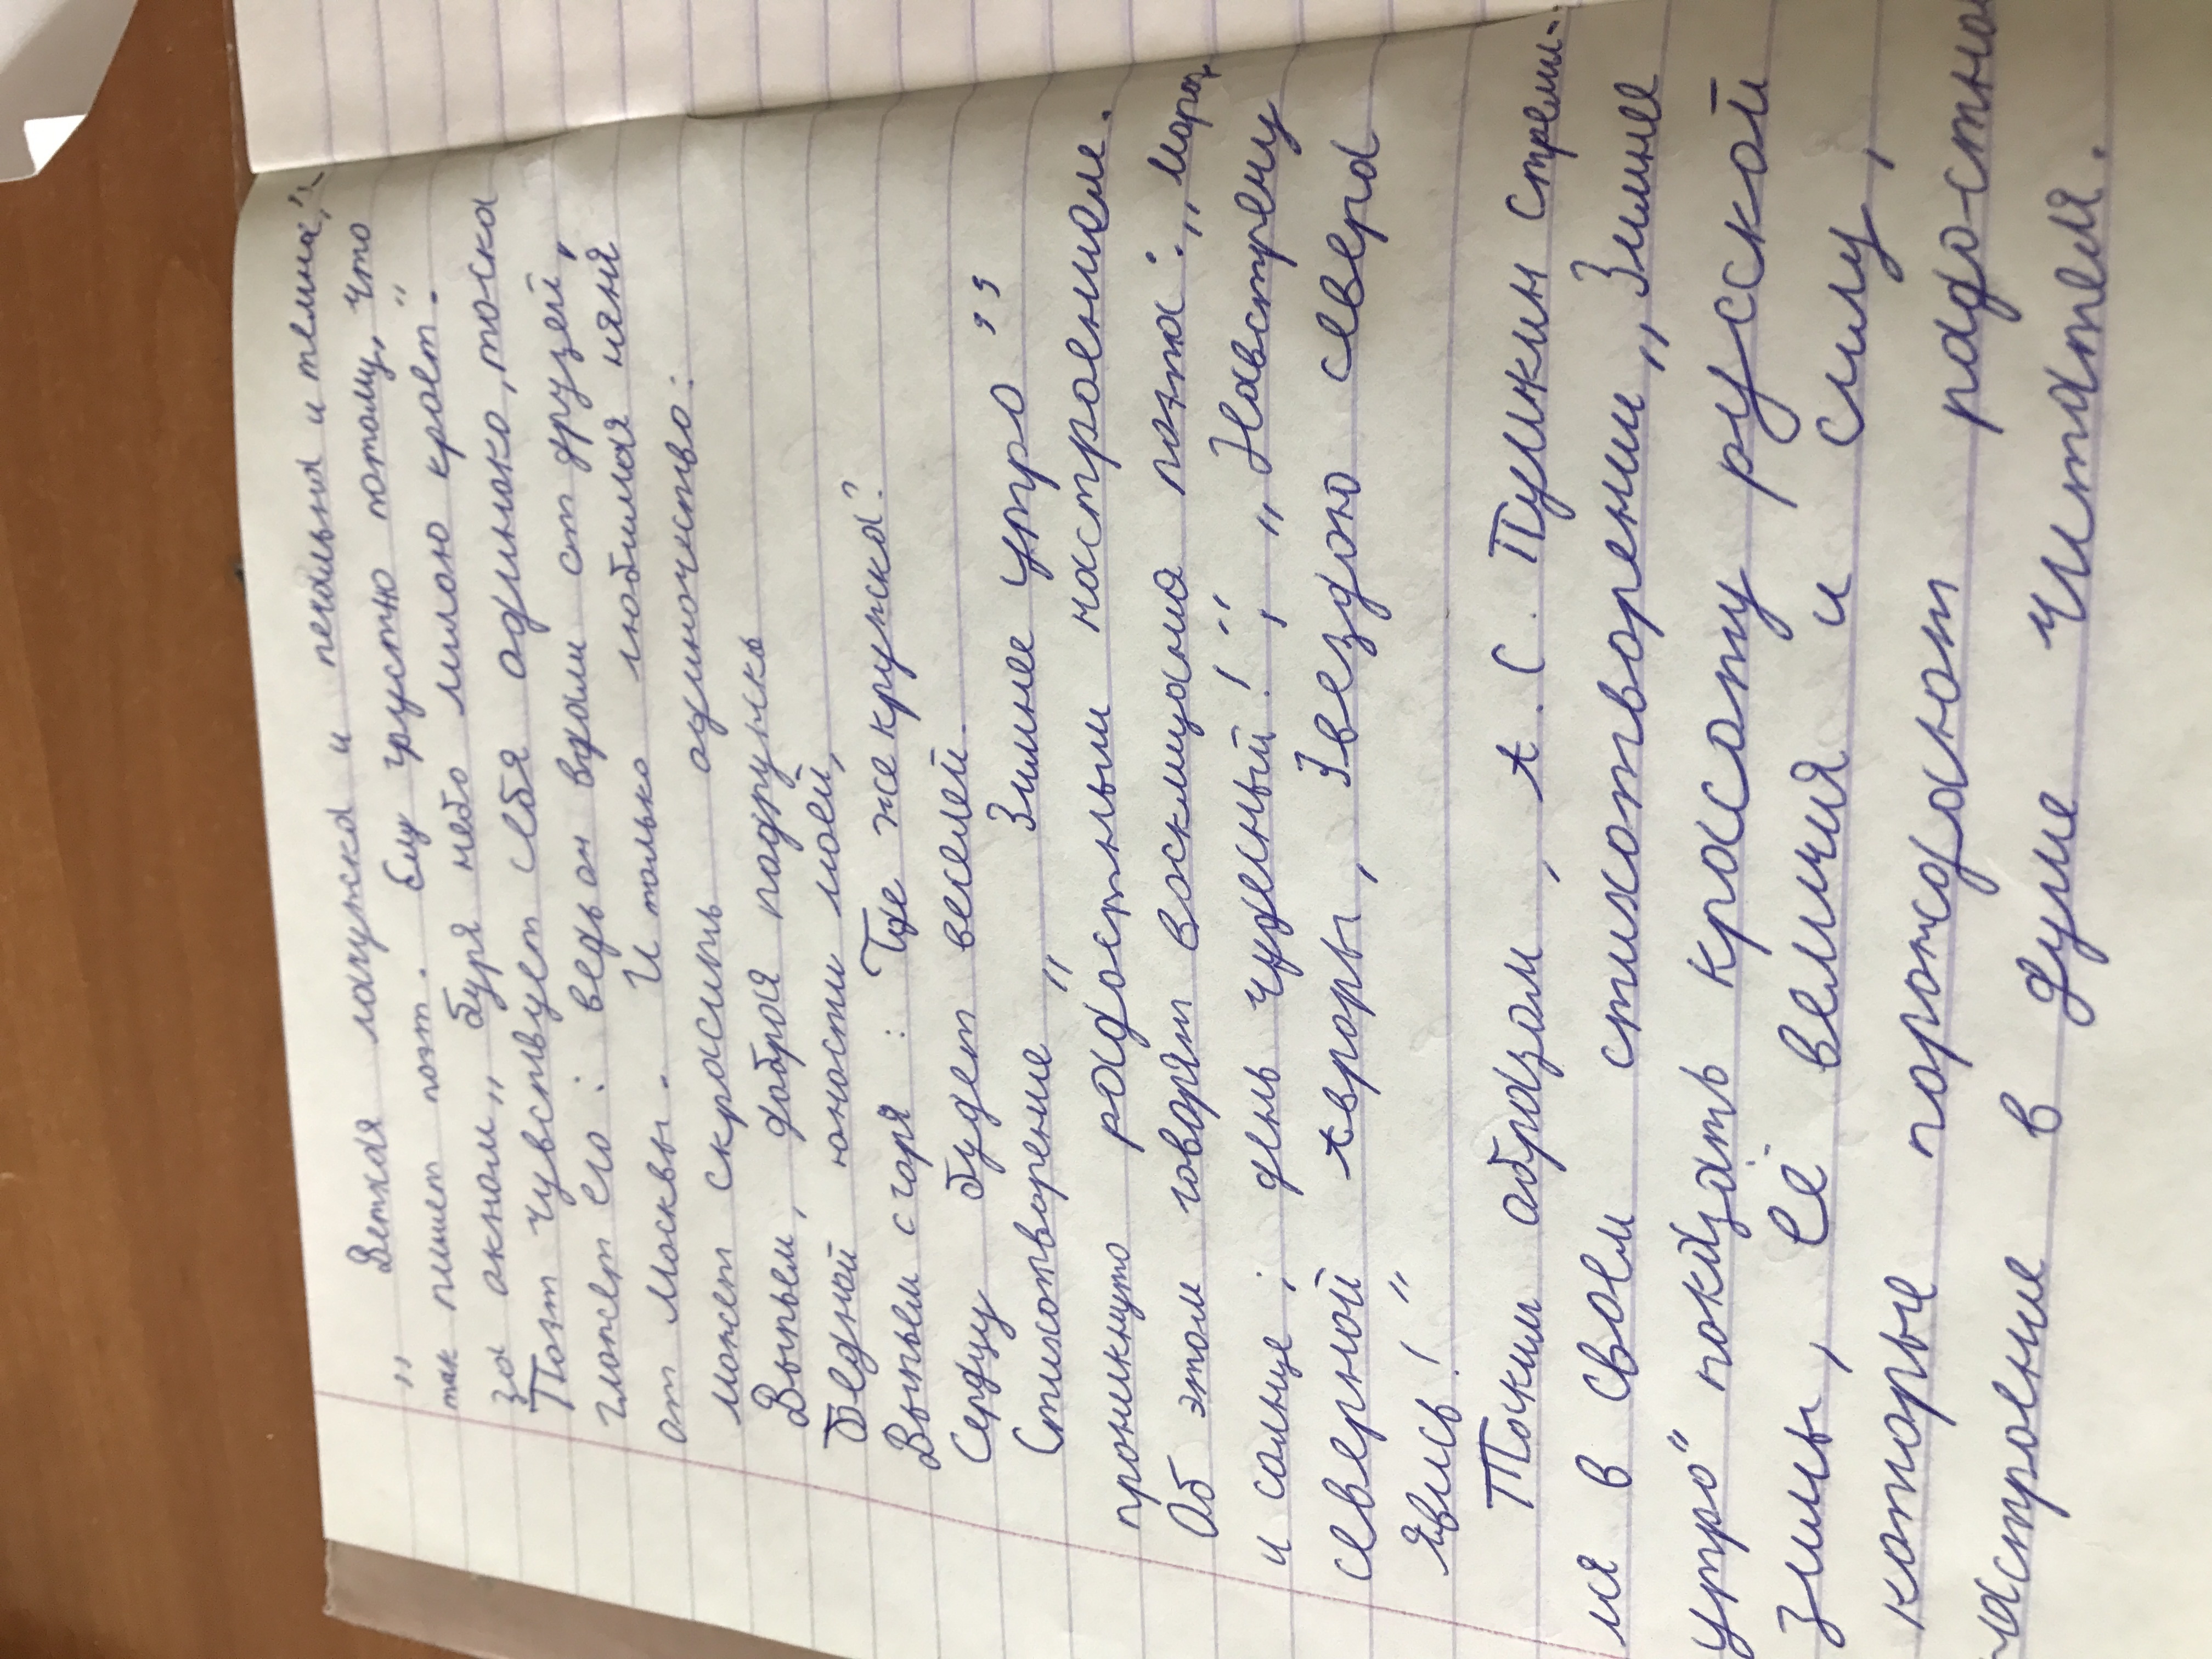 „ Ветхая лачужка и печальна и темна",
так пишет поэт. Ему грустно потому, что
за окном „ буря небо мглою кроет".
Поэт чувствует себя одиноко, тоска
гложет его : ведь он вдали от друзей,
от Москвы. И только любимая няня
может скрасить одиночество:
Выпьем, добрая подружка
Бедной юности моей,
Выпьем с горя : Где же кружка?
Сердцу будет веселей.
Стихотворение „ Зимнее утро ”
проникнуто радостным настроением.
Об этом говорят восклицания поэта: „ Мороз
и солнце ; день чудесный! ", „ Навстречу
северной Авроры, Звездою севера
явись! "
Таким образом, А. С. Пушкин стремит-
ся в своем стихотворении „ Зимнее
утро" показать красоту русской
зимы, её величия и силу,
которые порождают радостное
настроение в душе читателя.